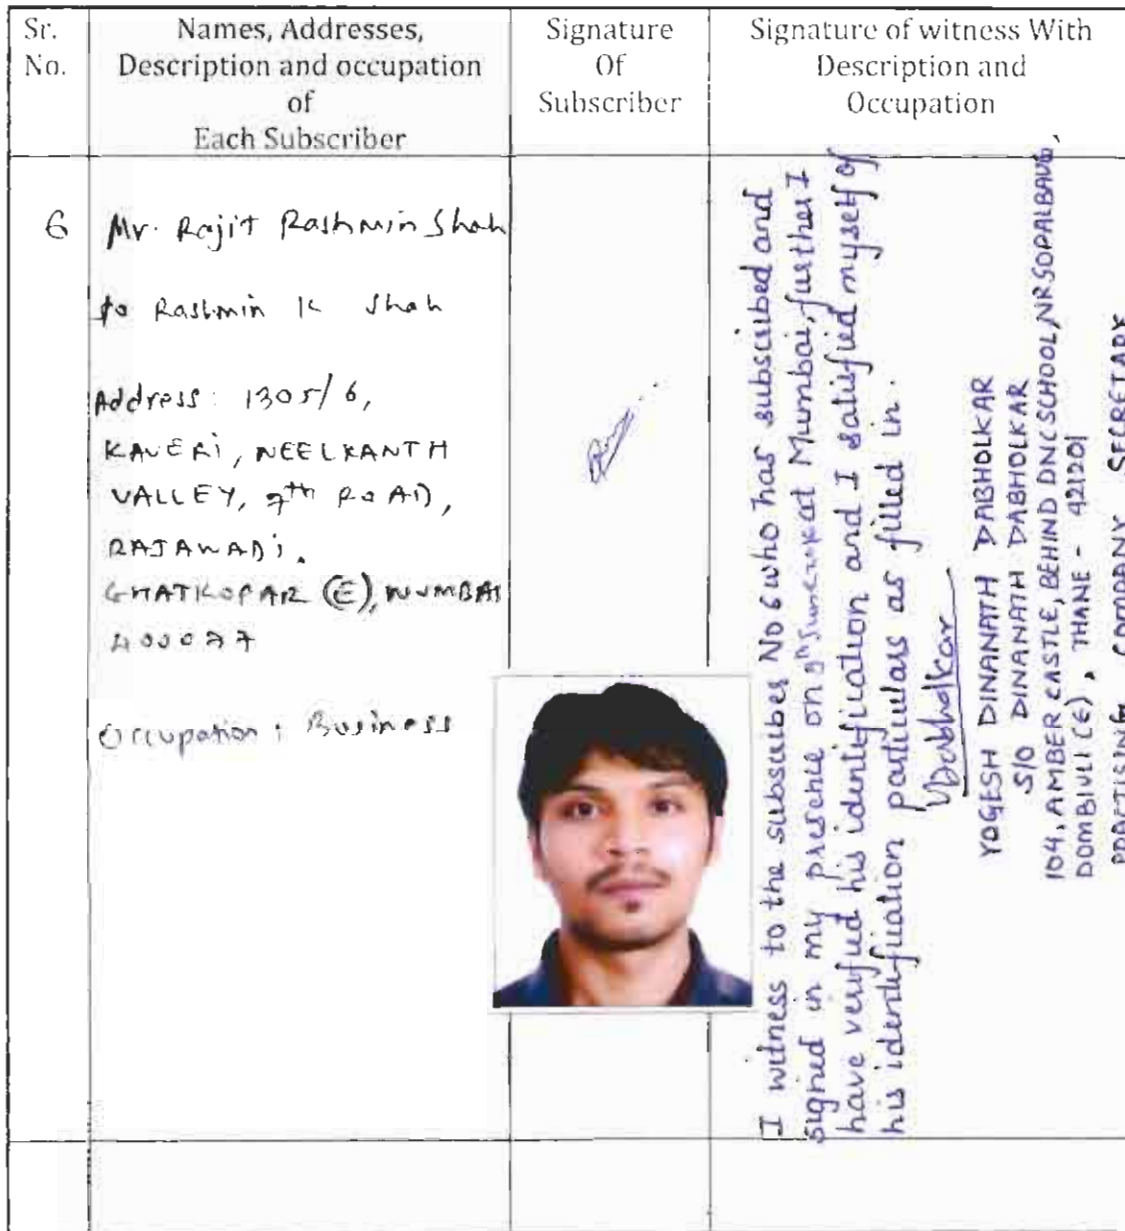 Sr.
No.
Names, Addresses,
Description and occupation
of
Each Subscriber
Signature
Of
Subscriber
Signature of witness With
Description and
Occupation
6
Mr. Rajit Rashmin Shah
s/o Rashmin K Shah
Address: 1305/6,
KAVERI, NEELKANTH
VALLEY, 7th ROAD,
RAJAWADI.
GHATKOPAR (E), MUMBAI
400077
Occupation: Business
I witness to the subscriber No 6 who has subscribed and
signed in my presence on at Mumbai, further I
have verified his identification and I satisfied myself of
his identification particulars as filled in.
YDabholkar
YOGESH DINANATH DABHOLKAR
S/O DINANATH DABHOLKAR
104, AMBER CASTLE, BEHIND DNC SCHOOL, NR GOPALBAUG,
DOMBIVLI (E), THANE - 421201
PRACTISING COMPANY SECRETARY